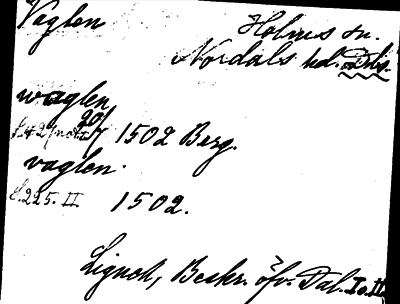 Vaglen Holms sn.
Nordals hd. Dls.
waglen
s. 427 not. 20/7 1502 Berg.
vaglen.
s. 225. II 1502.
Lignell, Beskr. öfv. Dal. I o. II